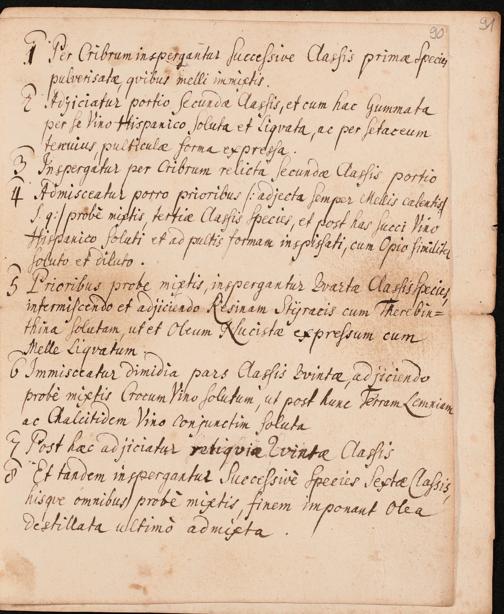 90 91
1 Per Cribrum inspergantur Successive Classis primæ Species
pulverisatæ, quibus melli immixtis.
2 Adjiciatur portio Secundæ Classis, et cum hac Gummata
per se Vino Hispanico Soluta et Liqvata, ac per setaceum
tenuius, pulticulæ forma expressa.
3 Inspergatur per Cribrum relicta Secundæ Classis portio
4 Admisceatur porro prioribus /: adjecta semper Mellis calentis
q: s :/ probè mixtis, tertiæ Classis Species, et post has Succi Vino
Hispanico soluti et ad pultis formam inspissati, cum Opio similiter
soluto et diluto.
5 Prioribus probe mixtis, inspergantur Qvartæ Classis Species,
intermiscendo et adjiciendo Resinam Styracis cum Therebin=
thina solutam, ut et Oleum Nucistæ expressum cum
Melle Liqvatum
6 Immisceatur dimidia pars Classis Qvintæ, adjiciendo
probè mixtis Crocum Vino Solutum, ut post hunc Terram Lemniam
ac Chalcitidem Vino conjunctim soluta
7 Post hæc adjiciatur reliqvia Qvintæ Classis
8 Et tandem inspergantur Successivè Species Sextæ Classis,
hisqve omnibus probè mixtis, finem imponant Olea
destillata ultimò admixta.